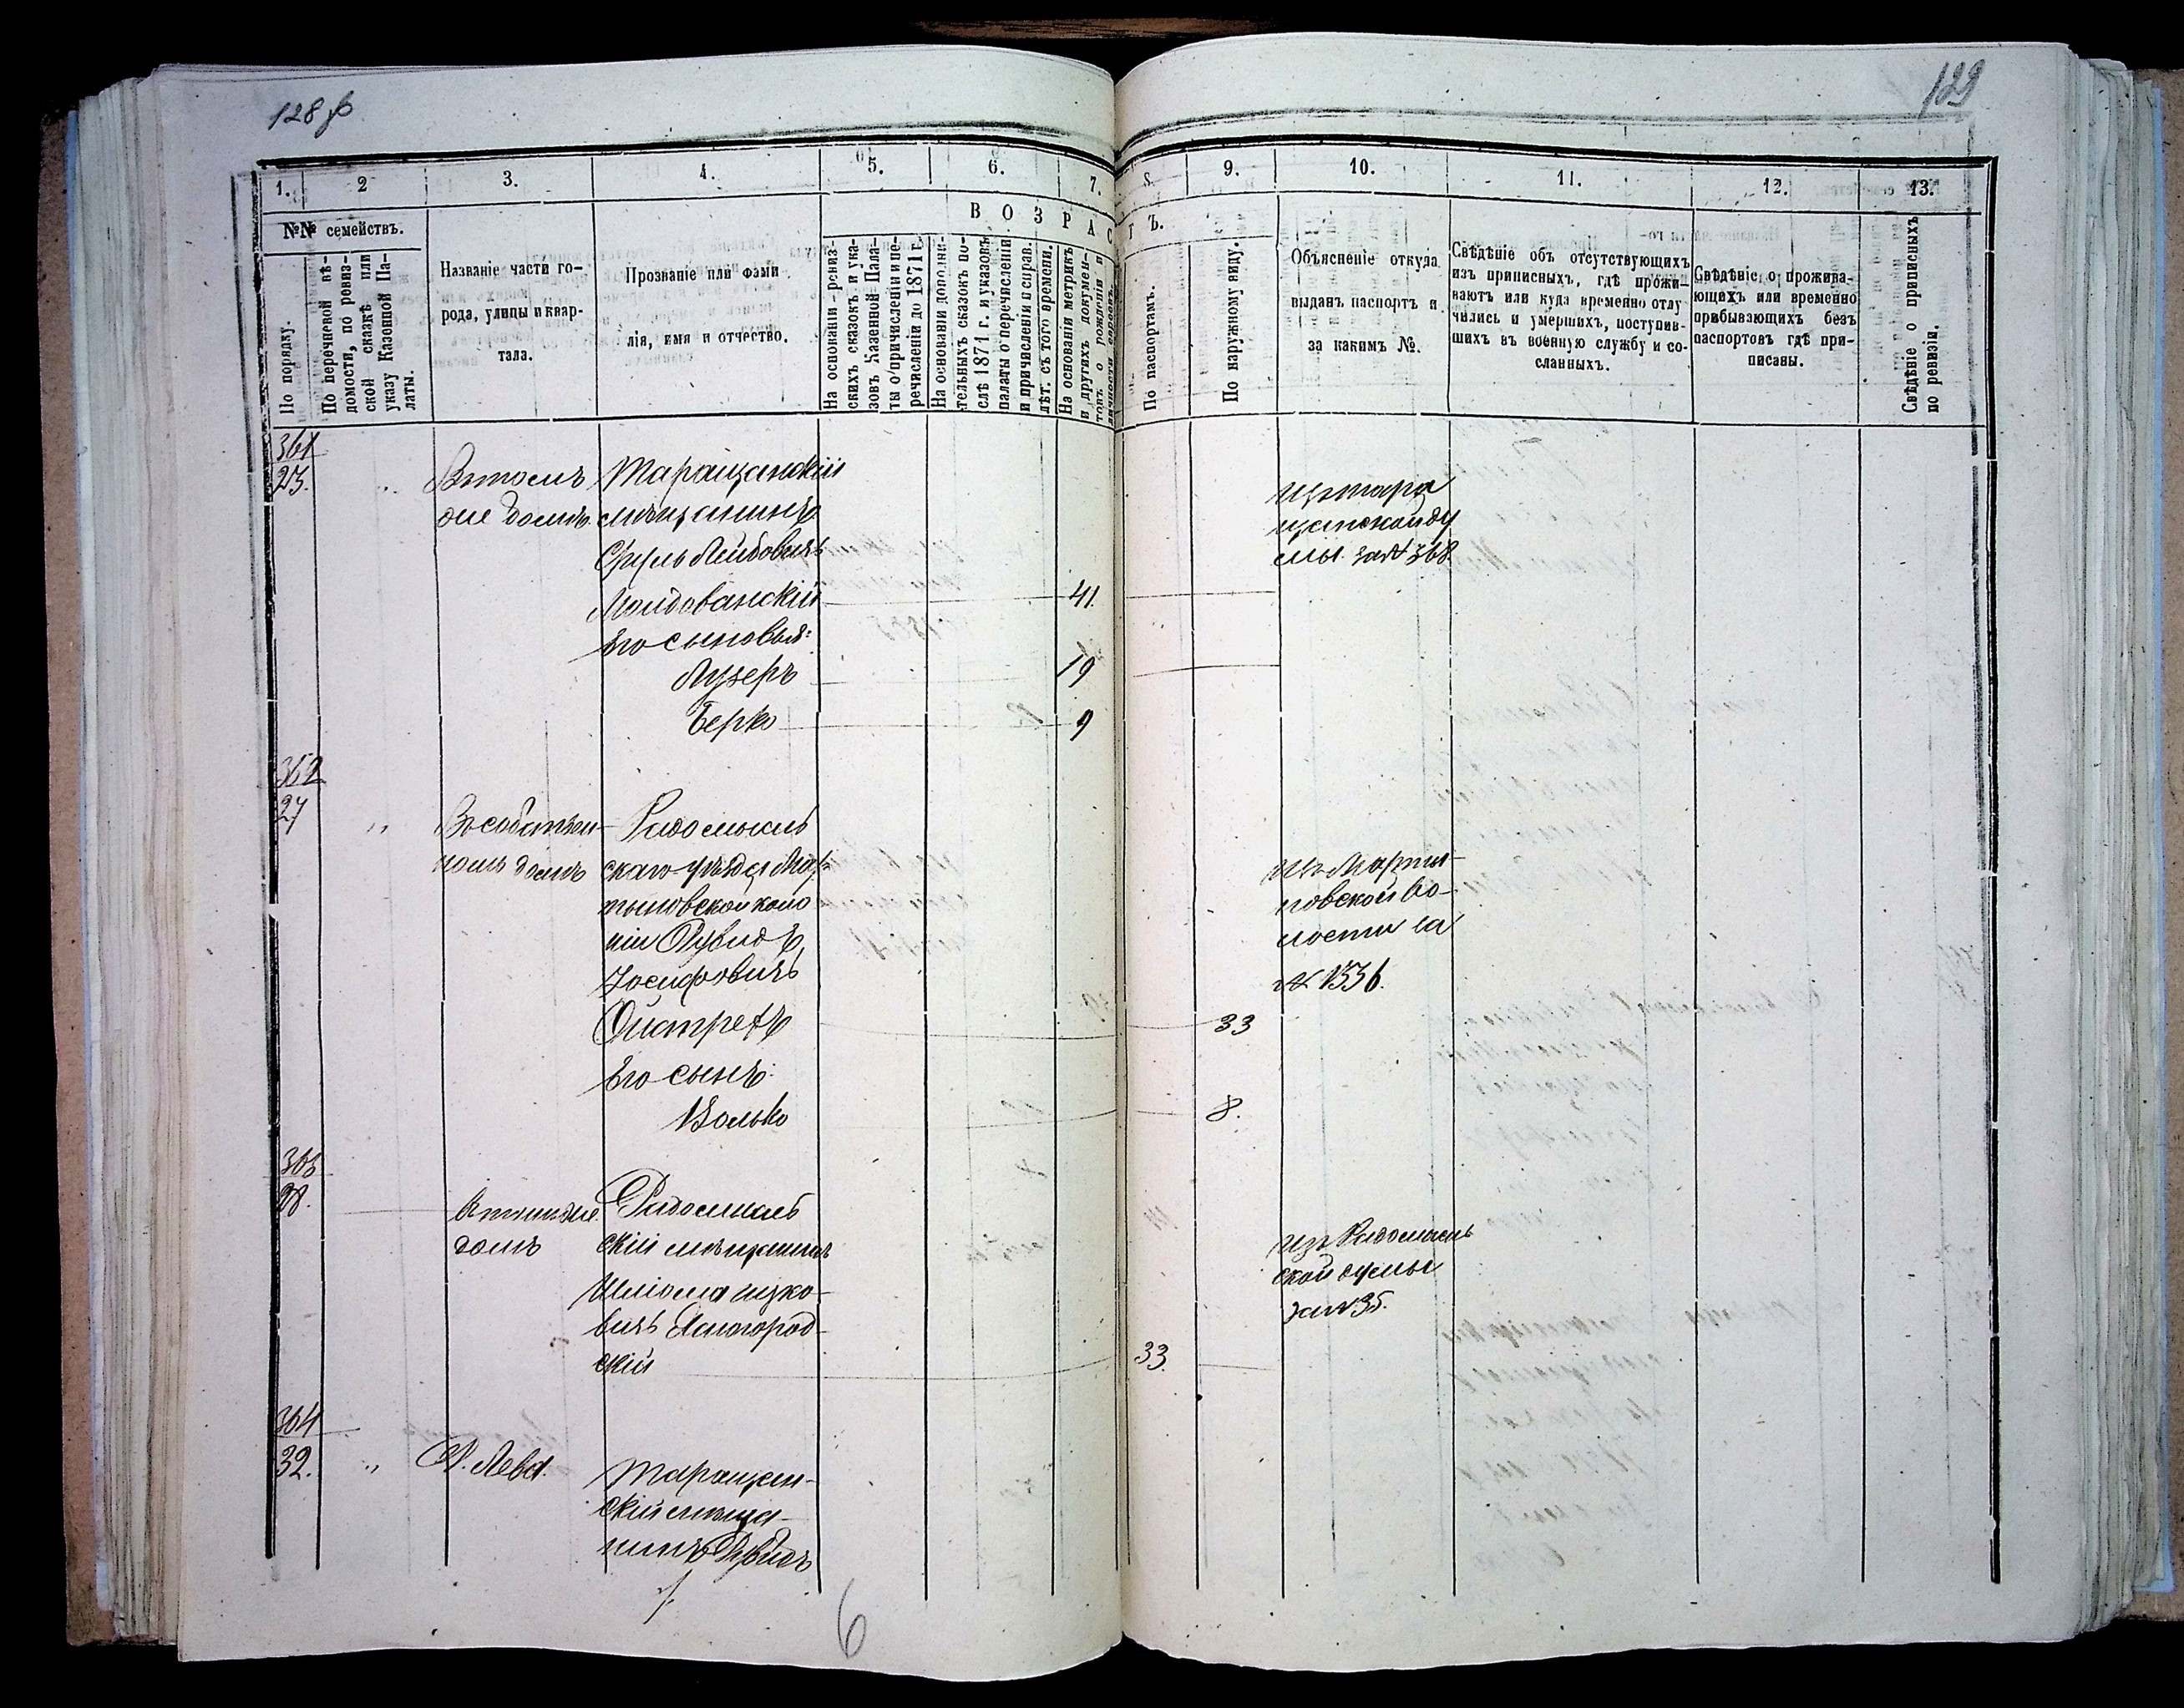 128
129
1.
2
3.
4.
5.
6.
7.
8.
9.
10.
11.
12.
13.
№№ семействъ.
По порядку.
По перечневой вѣ-
домости, по ревиз-
ской сказкѣ или
указу Казенной Па-
латы.
Названіе части го-
рода, улицы и квар-
тала.
Прозваніе или фами
лія, имя и отчество.
ВОЗРАСТЪ.
На основаніи ревиз-
скихъ сказокъ и ука-
зовъ Казенной Пала-
ты о причисленіи и пе-
речисленіи до 1871 г.
На основаніи дополни-
тельныхъ сказокъ по-
слѣ 1871 г. и указовъ
палаты о перечисленіи
и причисленіи и справ.
лѣт. съ того времени.
На основаніи метрикъ
и другихъ докумен-
товъ о рожденіи и
По паспортамъ.
По наружному виду.
Объясненіе откуда
выданъ паспортъ и
за какимъ №.
Свѣдѣніе объ отсутствующихъ
изъ приписныхъ, гдѣ прожи-
ваютъ или куда временно отлу
чились и умершихъ, поступив-
шихъ въ военную службу и со-
сланныхъ.
Свѣдѣніе о прожива-
ющихъ или временно
прибывающихъ безъ
паспортовъ гдѣ при-
писаны.
Свѣдѣніе о приписныхъ
по ревизіи.
361
Втомъ
же домѣ
Таращанскій
мѣщанинъ
Сруль Лейбовичъ
Молдованскій 41.
Его сыновья:
Лузеръ 19
Берко 9
Изъ тара
щанской ду
мы за № 368
362
27 "
Въ собствен
номъ домѣ
Радомысль
скаго уѣзда Мар-
тыновской коло
ніи Дувидъ
Іосифовичъ
33
Его сынъ:
Волько 8.
Изъ Марты-
новской Во-
лости за
№ 1336.
363
28.
Втомже
домѣ
Радомысль
скій мѣщанинъ
Шліома Ицко-
вичъ Ясногород-
скій 33.
Изъ Радомысль
ской думы
за № 35.
364
32. "
Таращан-
скій мѣща-
нинъ Дувидъ
6